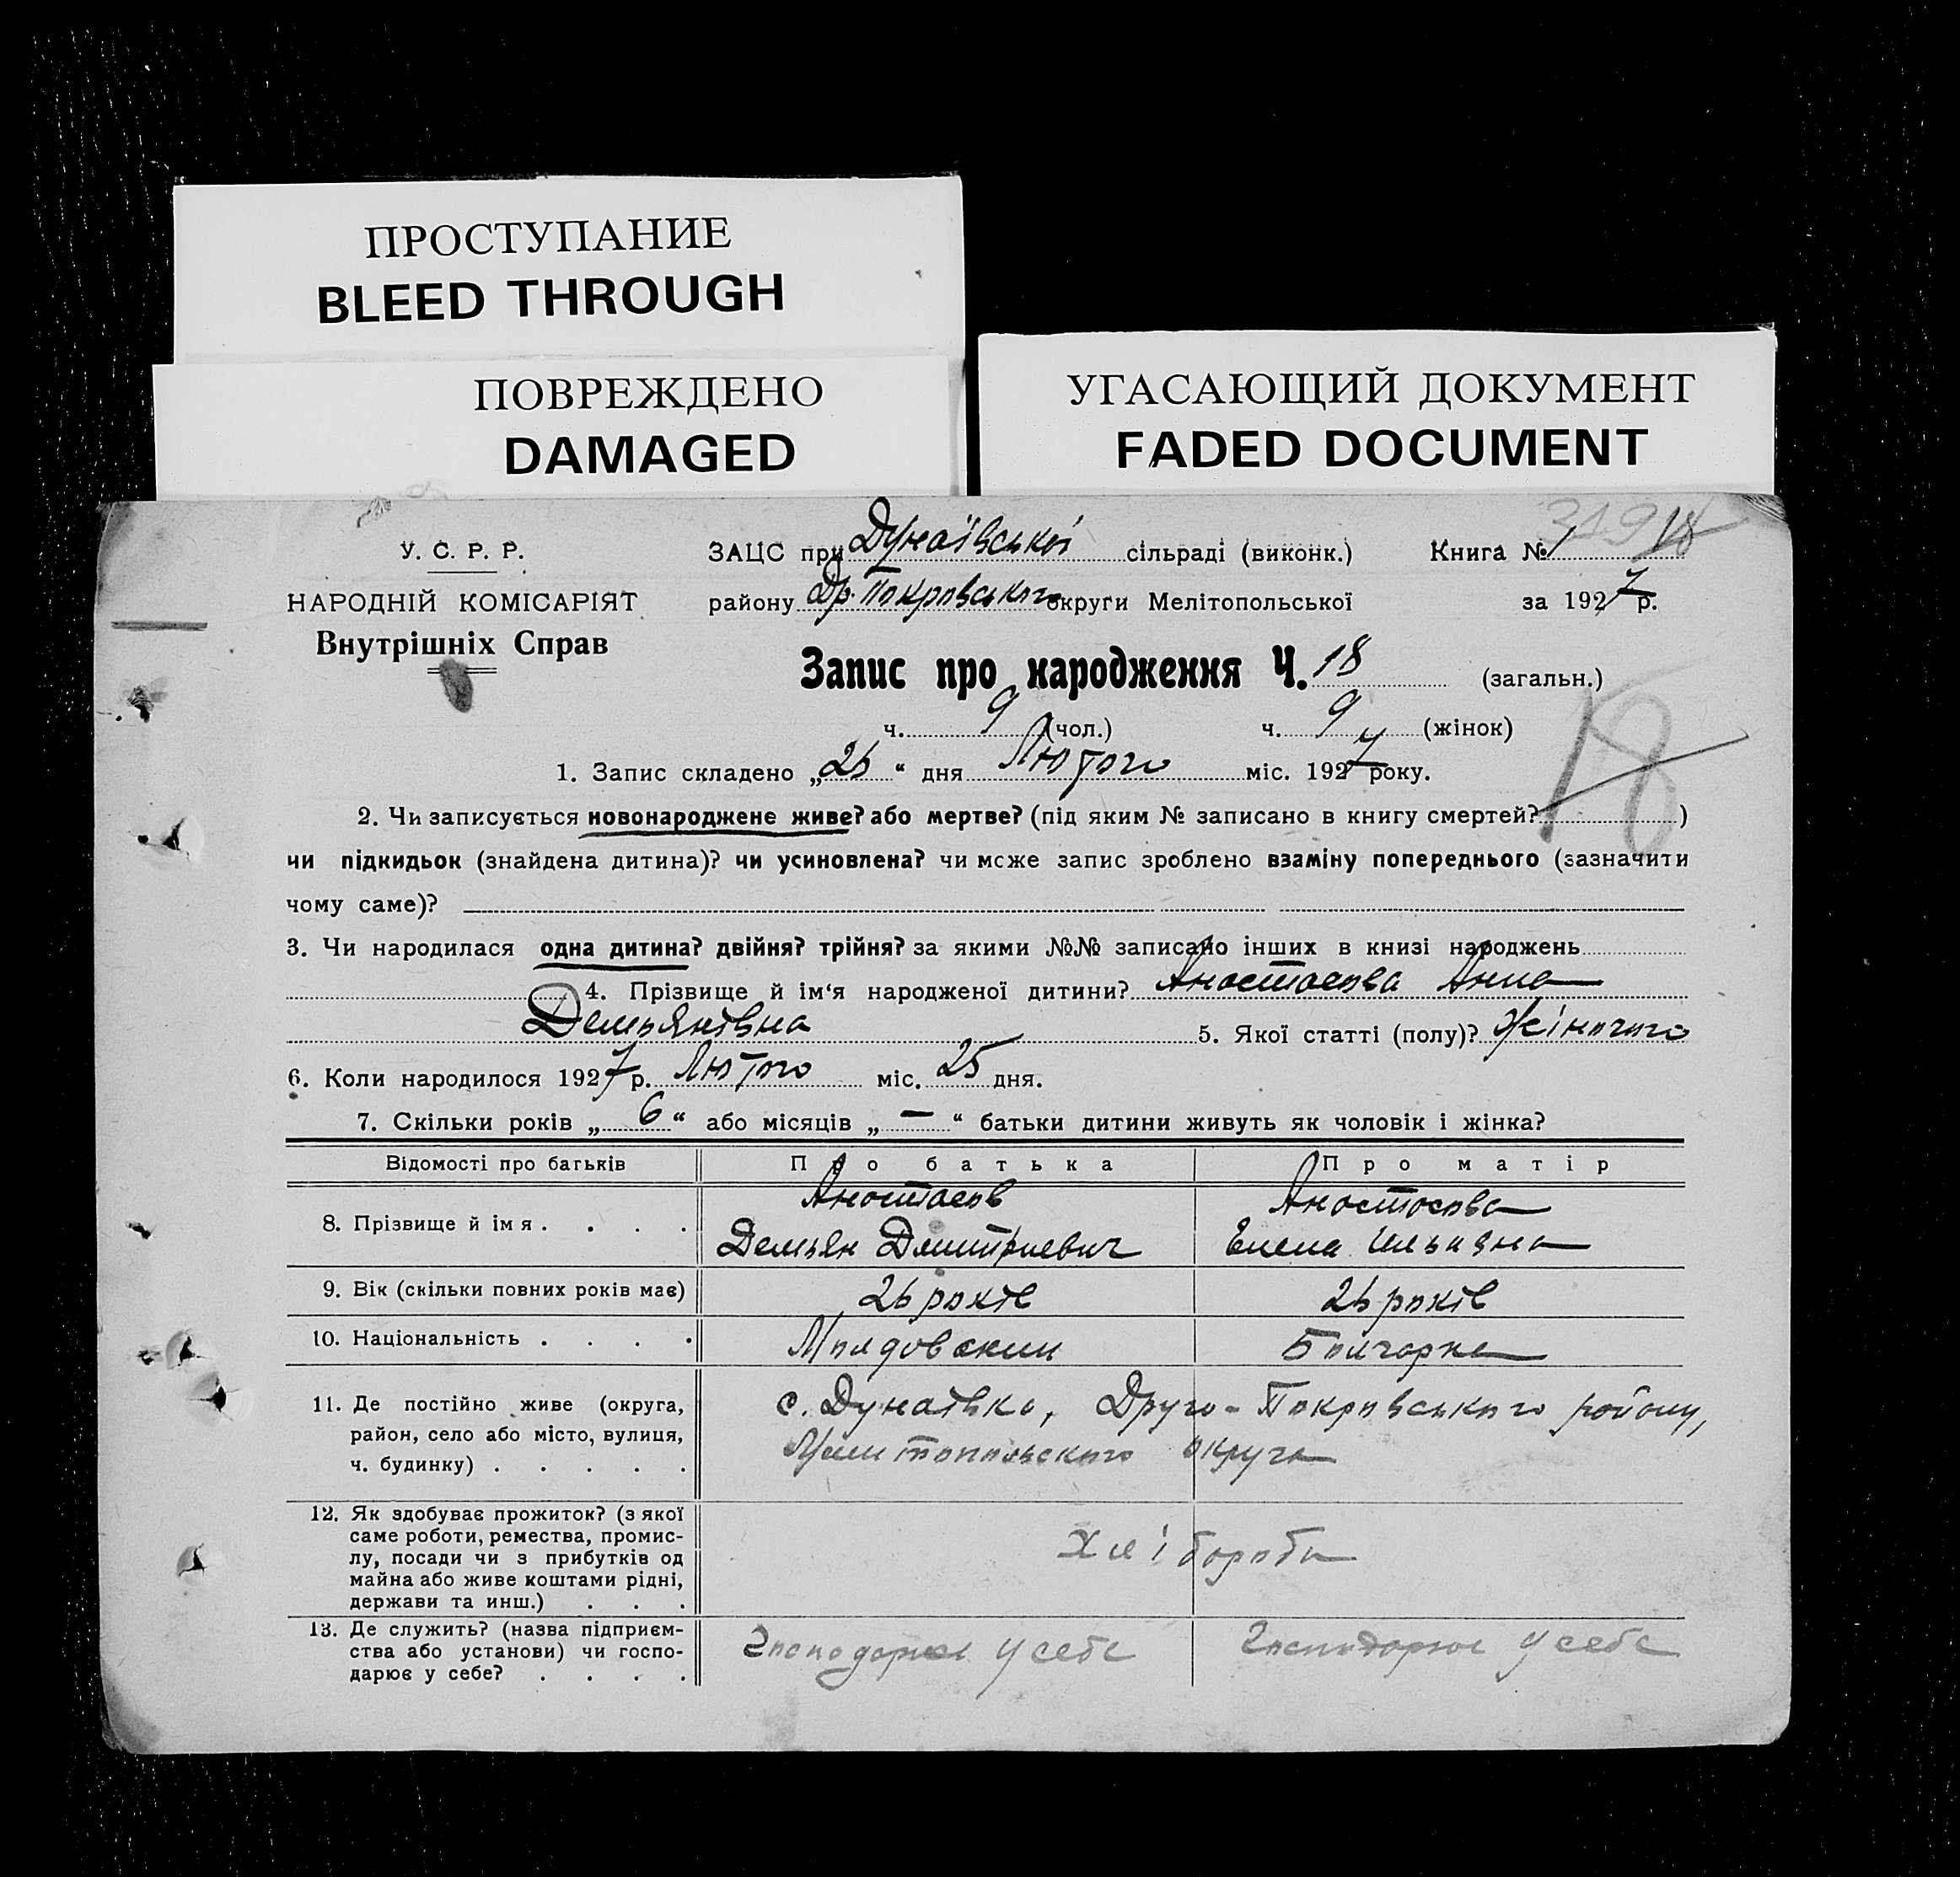 ПРОСТУПАНИЕ
BLEED THROUGH
ПОВРЕЖДЕНО
DAMAGED
УГАСАЮЩИЙ ДОКУМЕНТ
FADED DOCUMENT
319 18
У. С. Р. Р.
НАРОДНІЙ КОМІСАРІЯТ
Внутрішніх Справ
ЗАЦС при Дунаївській сільраді (виконк.) Книга № 1
району Др. Покровського округи Мелітопольської за 1927 р.
Запис про народження Ч. 18 (загальн.)
ч. 9 (чол.) ч. 9 (жінок)
18
1. Запис складено „26“ дня Лютого міс. 1927 року.
2. Чи записується новонароджене живе? або мертве? (під яким № записано в книгу смертей? )
чи підкидьок (знайдена дитина)? чи усиновлена? чи може запис зроблено взаміну попереднього (зазначити
чому саме)?
3. Чи народилася одна дитина? двійня? трійня? за якими №№ записано інших в книзі народжень
4. Прізвище й ім‘я народженої дитини? Анастасова Анна
Демьянівна 5. Якої статті (полу)? Жіночого
6. Коли народилося 1927 р. Лютого міс. 25 дня.
7. Скільки років „ 6 “ або місяців „ — “ батьки дитини живуть як чоловік і жінка?
Відомості про батьків Про батька Про матір
8. Прізвище й імя . . . . Анастасов Анастасова
Демьян Дмитриевич Елена Ильивна
9. Вік (скільки повних років має) 26 років 26 років
10. Національність . . . . Молдовский Болгарка
11. Де постійно живе (округа,
район, село або місто, вулиця,
ч. будинку) . . . . .
с. Дунаівка, Друго-Покровського району,
Мелитопольского округа
12. Як здобуває прожиток? (з якої
саме роботи, ремества, промис-
лу, посади чи з прибутків од
майна або живе коштами рідні,
держави та инш.) . . .
Хліборобы
13. Де служить? (назва підприєм-
ства або установи) чи госпо-
дарює у себе? . . . .
Господарює у себе Господарює у себе